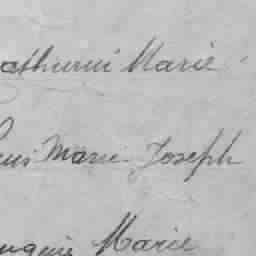 athurin Marie
ouis Marie Joseph
ugénie Marie